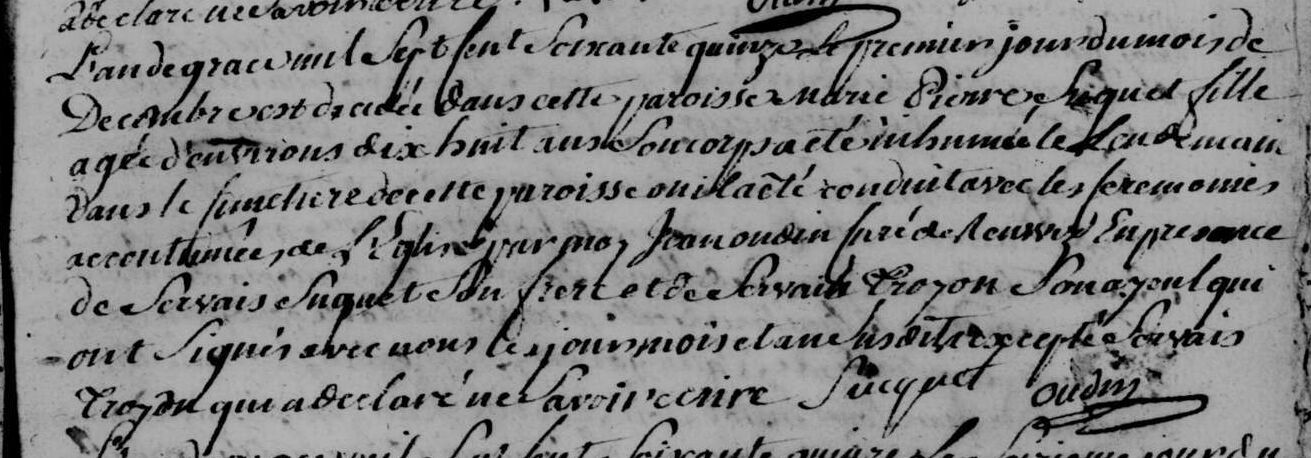 a declaré ne Savoir ecrire oudin
L'an de grace mil Sept Cent Soixante quinze Le premier jour du mois de
Decembre est decedée dans cette paroisse Marie Pierre Suquet fille
agée d'environs dix huit ans Son corps a eté inhumée le Lendemain
dans le simetiere de cette paroisse ou il a eté conduit avec les seremonies
accoutumées de L'Eglise par moy Jean oudin Curé de En presance
de Servais Suquet Son frere et de Servais Trozon Son ayeul qui
ont Signés avec nous les jour mois et an Susdits excepté Servais
Trozon qui a declaré ne Savoir ecrire Sucquet oudin
mil Sept Cent Soixante quinze Le jour du